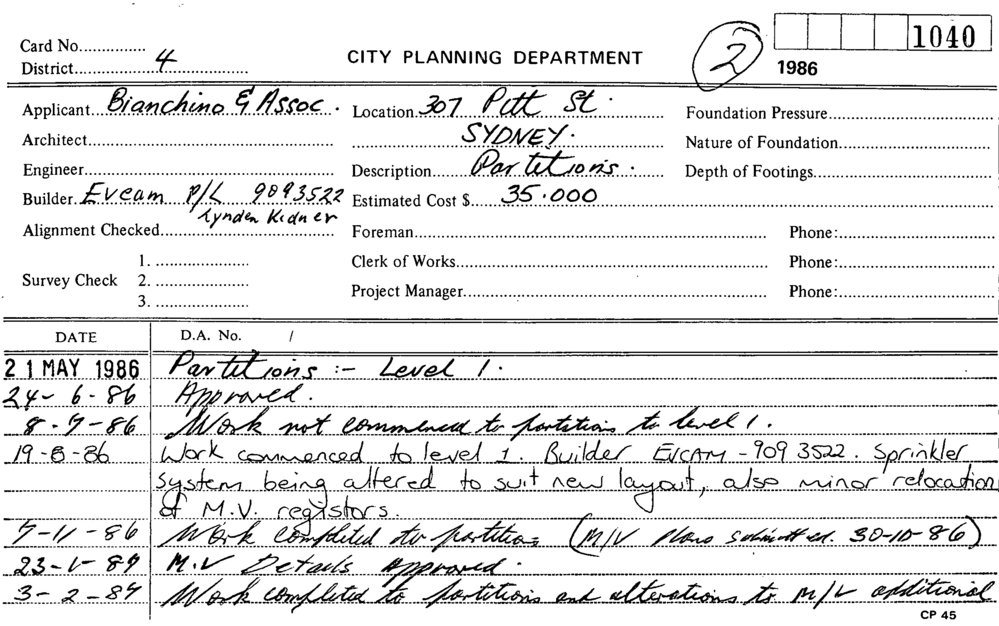 Card No...............
District... 4
CITY PLANNING DEPARTMENT
2
1040
1986
Applicant... Bianchino & Assoc.
Location... 307 Pitt St.
SYDNEY.
Foundation Pressure...
Architect...
Nature of Foundation...
Engineer...
Description... Partitions.
Depth of Footings...
Builder... Evcam P/L 9093522
Lynden Kidner
Estimated Cost $... 35.000
Alignment Checked...
Foreman...
Phone:...
Survey Check
1. ...
2. ...
3. ...
Clerk of Works...
Phone:...
Project Manager...
Phone:...
DATE
D.A. No. /
21 MAY 1986 Partitions :- Level 1.
24-6-86 Approved.
8-7-86 Work not commenced to partitions to level 1.
19-8-86 Work commenced to level 1. Builder EVCAM - 909 3522. Sprinkler
system being altered to suit new layout, also minor relocation
of M.V. registors.
7-11-86 Work completed to partitions (M/V plans submitted. 30-10-86)
23-1-87 M.V Details Approved.
3-2-87 Work completed to partitions and alterations to M/V additional
CP 45